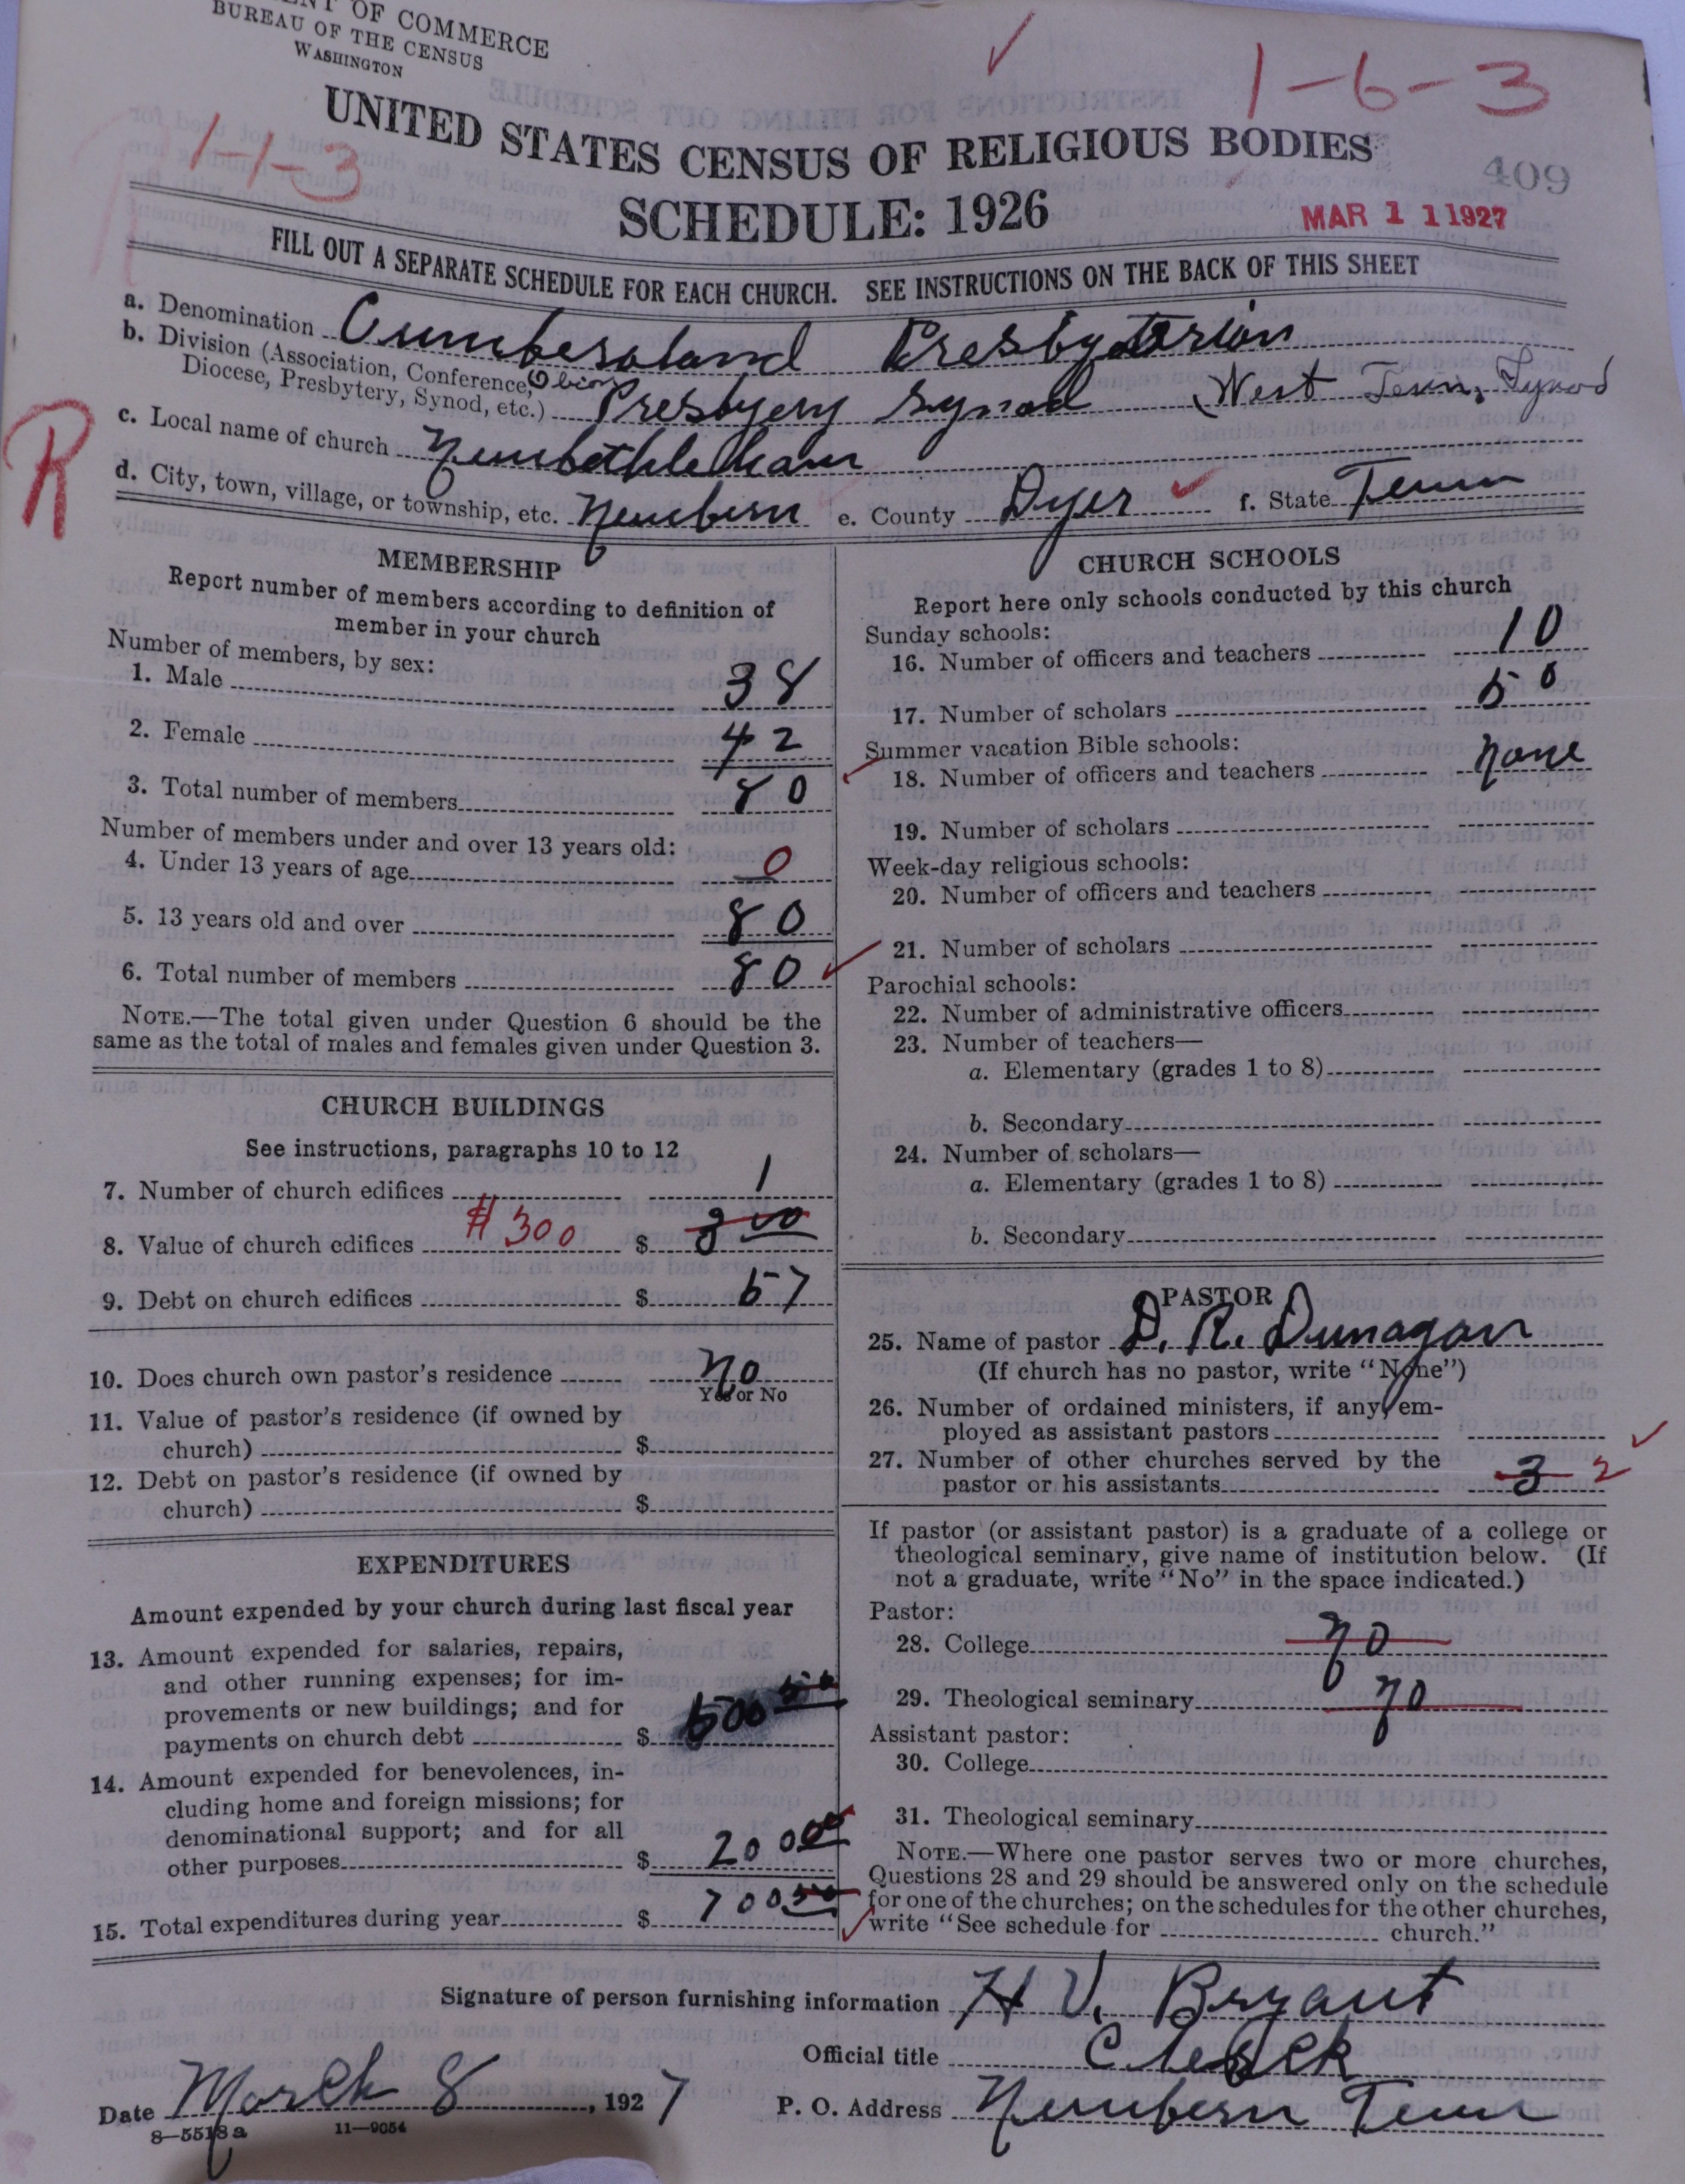 OF COMMERCE
BUREAU OF THE CENSUS
WASHINGTON
1-6-3
1-1-3
UNITED STATES CENSUS OF RELIGIOUS BODIES
409
SCHEDULE: 1926
MAR 1 1 1927
FILL OUT A SEPARATE SCHEDULE FOR EACH CHURCH. SEE INSTRUCTIONS ON THE BACK OF THIS SHEET
a. Denomination Cumberland Presbyterian
b. Division (Association, Conference, Obion
Diocese, Presbytery, Synod, etc.) Presbyery Synod (West Tenn, Synod
R
c. Local name of church Newbethleham
d. City, town, village, or township, etc. Newbern e. County Dyer f. State Tenn
MEMBERSHIP
Report number of members according to definition of
member in your church
Number of members, by sex:
1. Male 38
2. Female 42
3. Total number of members 80
Number of members under and over 13 years old:
4. Under 13 years of age 0
5. 13 years old and over 80
6. Total number of members 80
NOTE.—The total given under Question 6 should be the
same as the total of males and females given under Question 3.
CHURCH BUILDINGS
See instructions, paragraphs 10 to 12
7. Number of church edifices 1
8. Value of church edifices #300 $ 300
9. Debt on church edifices $ 57
10. Does church own pastor's residence No
Yes or No
11. Value of pastor's residence (if owned by
church) $
12. Debt on pastor's residence (if owned by
church) $
EXPENDITURES
Amount expended by your church during last fiscal year
13. Amount expended for salaries, repairs,
and other running expenses; for im-
provements or new buildings; and for
payments on church debt $ 500
14. Amount expended for benevolences, in-
cluding home and foreign missions; for
denominational support; and for all
other purposes $ 200 00
15. Total expenditures during year $ 700
CHURCH SCHOOLS
Report here only schools conducted by this church
Sunday schools:
16. Number of officers and teachers 10
17. Number of scholars 50
Summer vacation Bible schools:
18. Number of officers and teachers none
19. Number of scholars
Week-day religious schools:
20. Number of officers and teachers
21. Number of scholars
Parochial schools:
22. Number of administrative officers
23. Number of teachers—
a. Elementary (grades 1 to 8)
b. Secondary
24. Number of scholars—
a. Elementary (grades 1 to 8)
b. Secondary
PASTOR
25. Name of pastor D. R. Dunagan
(If church has no pastor, write "None")
26. Number of ordained ministers, if any, em-
ployed as assistant pastors
27. Number of other churches served by the
pastor or his assistants 3 2
If pastor (or assistant pastor) is a graduate of a college or
theological seminary, give name of institution below. (If
not a graduate, write "No" in the space indicated.)
Pastor:
28. College no
29. Theological seminary no
Assistant pastor:
30. College
31. Theological seminary
NOTE.—Where one pastor serves two or more churches,
Questions 28 and 29 should be answered only on the schedule
for one of the churches; on the schedules for the other churches,
write "See schedule for church."
Signature of person furnishing information H V. Bryant
Official title Clerk
Date March 8, 1927 P. O. Address Newbern Tenn
8—5518a 11—9054